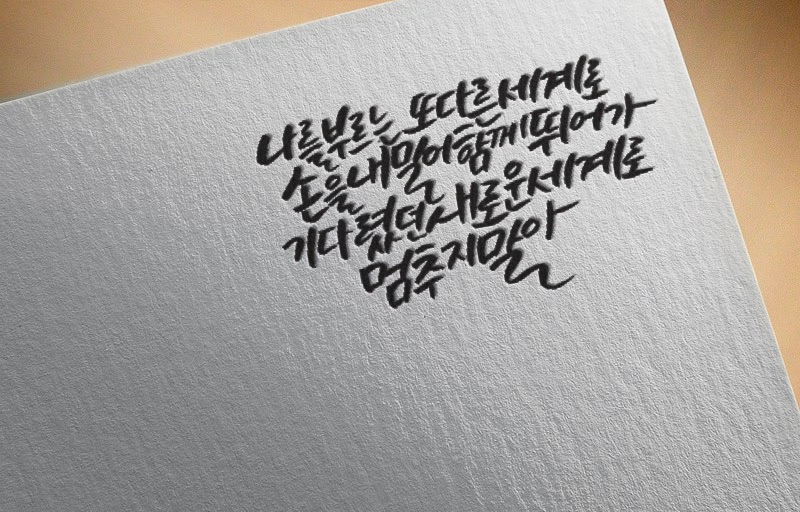 나를부르는 또다른세계로
손을내밀어함께뛰어가
기다렸던새로운세계로
멈추지말아